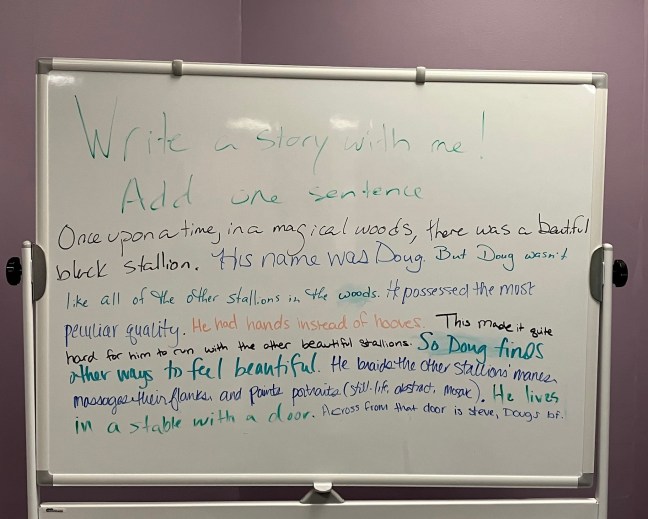 Write a story with me!
Add one sentence
Once upon a time, in a magical woods, there was a beautiful
black stallion. His name was Doug. But Doug wasn't
like all of the other stallions in the woods. He possessed the most
peculiar quality. He had hands instead of hooves. This made it quite
hard for him to run with the other beautiful stallions. So Doug finds
other ways to feel beautiful. He braids the other stallions' manes
massages their flanks and paints portraits (still-life, abstract, mosaic). He lives
in a stable with a door. Across from that door is Steve, Doug's bf.